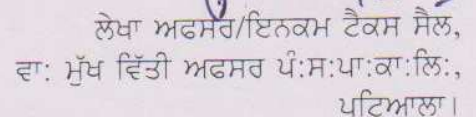 ਲੇਖਾ ਅਫਸਰ/ਇਨਕਮ ਟੈਕਸ ਸੈਲ,
ਵਾ: ਮੁੱਖ ਵਿੱਤੀ ਅਫਸਰ ਪੰ:ਸ:ਪਾ:ਕਾ:ਲਿ:,
ਪਟਿਆਲਾ।